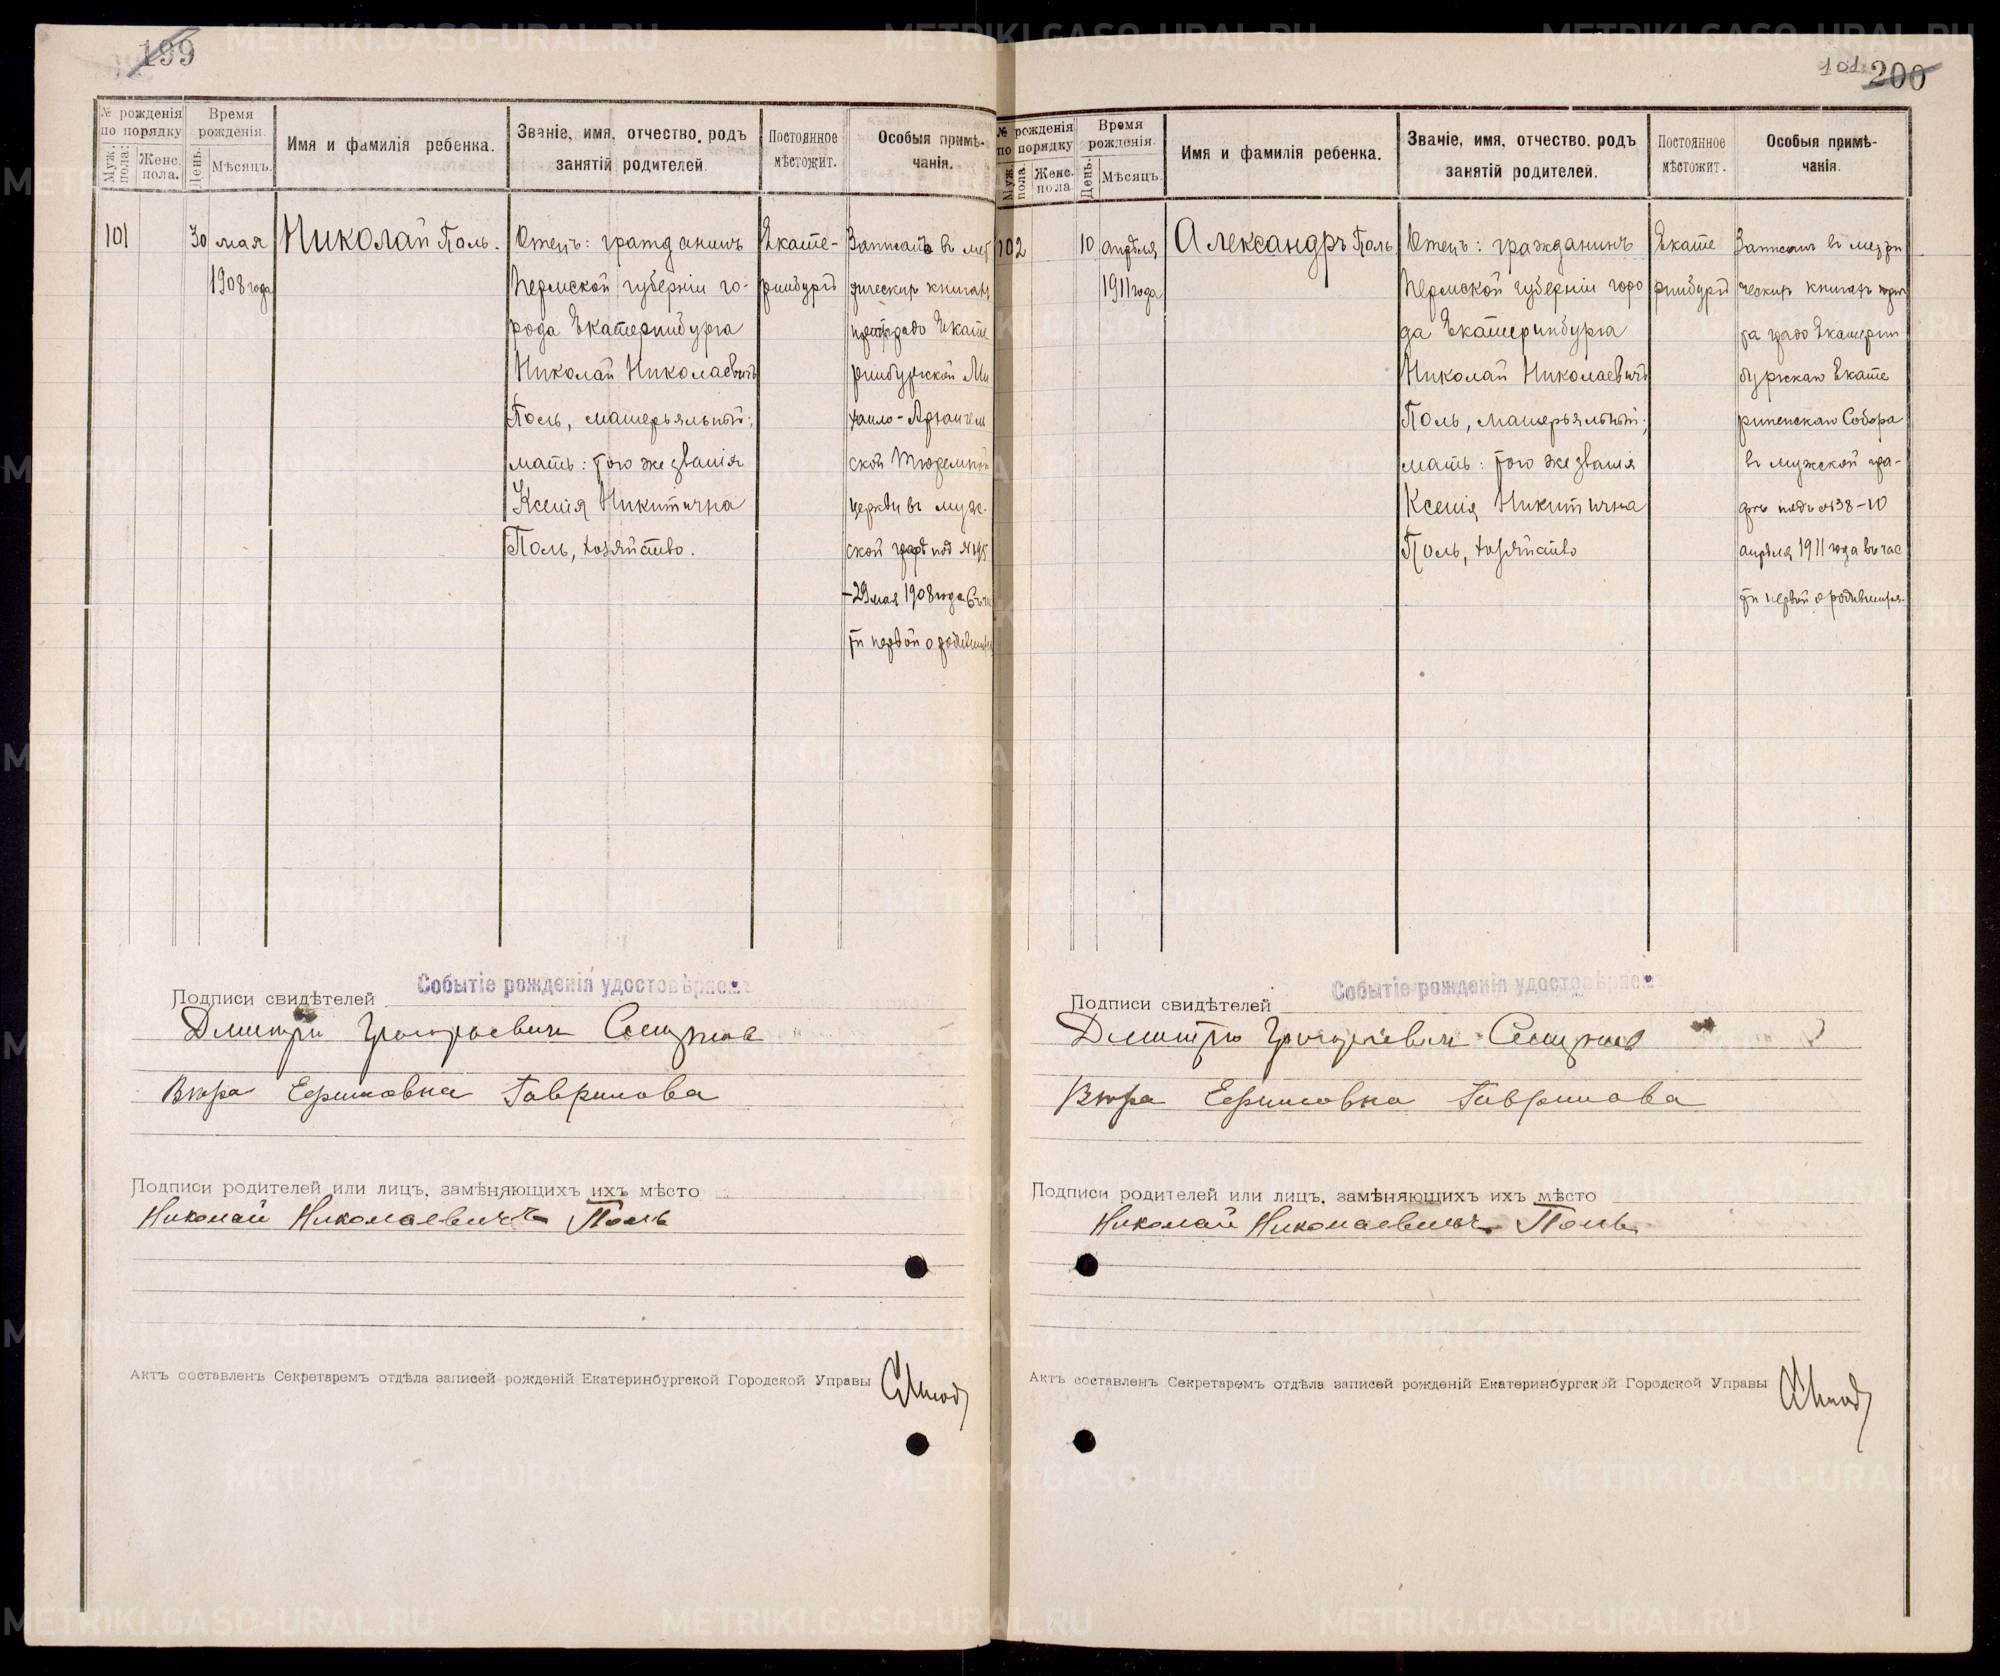 199
№ рожденія по порядку
Муж. пола.
Женс. пола.
Время рожденія.
День.
Мѣсяцъ.
Имя и фамилія ребенка.
Званіе, имя, отчество, родъ занятій родителей.
Постоянное мѣстожит.
Особыя примѣчанія.
101
30 мая
1908 года
Николай Поль.
Отецъ: гражданинъ
Пермской губерніи го-
рода Екатеринбурга
Николай Николаевичъ
Поль, матерьяльный;
мать: того же званія
Ксенія Никитична
Поль, хозяйство.
Екате-
ринбургъ
Записанъ въ мет
рическихъ книгахъ
градо Екате
ринбургской Ми
хаило-Архангель
ской Тюремной
церкви въ муж-
ской графѣ под № 195
-29 мая 1908 года въ ча
сти первой о родившихся
Событіе рожденія удостовѣряемъ
Подписи свидѣтелей
Дмитри Григорьевич
Вѣра Ефимовна Гаврилова
Подписи родителей или лицъ, замѣняющихъ ихъ мѣсто
Николай Николаевичъ Поль
Актъ составленъ Секретаремъ отдѣла записей рожденій Екатеринбургской Городской Управы
101
200
№ рожденія по порядку
Муж. пола.
Женс. пола
Время рожденія.
День.
Мѣсяцъ.
Имя и фамилія ребенка.
Званіе, имя, отчество, родъ занятій родителей.
Постоянное мѣстожит.
Особыя примѣчанія.
102
10 апрѣля
1911 года
Александръ Поль
Отецъ: гражданинъ
Пермской губерніи горо
да Екатеринбурга
Николай Николаевичъ
Поль, матерьяльный;
мать: того же званія
Ксенія Никитична
Поль, хозяйство
Екате
ринбургъ
Записанъ въ метри
ческихъ книгахъ
градо Екатерин
бургскаго Екате
рининскаго Собора
въ мужской гра-
фѣ подъ № 38-10
апрѣля 1911 года въ час
ти первой о родившихся.
Событіе рожденія удостовѣряемъ
Подписи свидѣтелей
Дмитрий Григорьевич
Вѣра Ефимовна Гаврилова
Подписи родителей или лицъ, замѣняющихъ ихъ мѣсто
Николай Николаевичъ Поль
Актъ составленъ Секретаремъ отдѣла записей рожденій Екатеринбургской Городской Управы
METRIKI.GASO-URAL.RU